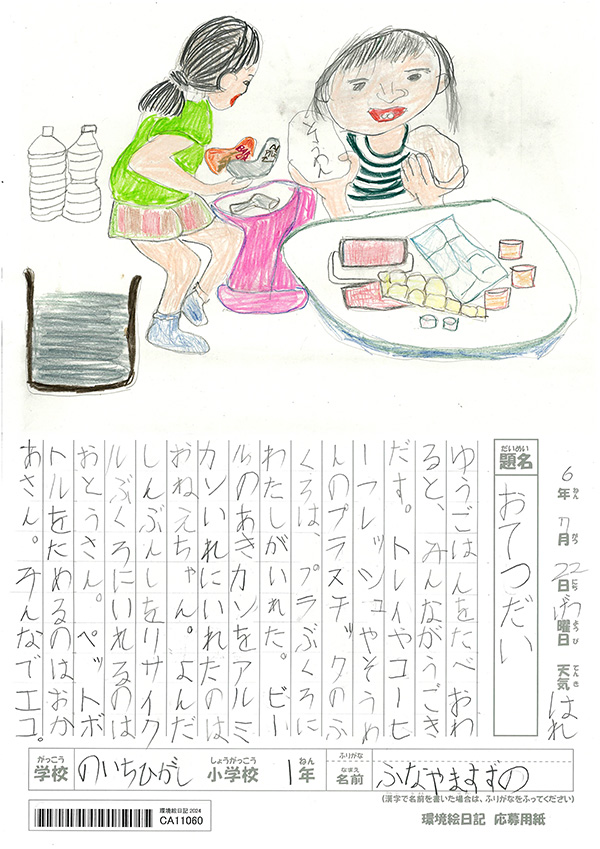 そうめん
6年ねん 7月がつ 22日にち げつ曜日ようび 天気てんき はれ
だいめい
題名 おてつだい
ゆうごはんをたべおわ
ると、みんながうごき
だす。トレイやコーヒ
ーフレッシュやそうめ
んのプラスチックのふ
くろは、プラぶくろに
わたしがいれた。ビー
ルのあきカンをアルミ
カンいれにいれたのは
おねえちゃん。よんだ
しんぶんしをリサイク
ルぶくろにいれるのは
おとうさん。ペットボ
トルをためるのはおか
あさん。みんなでエコ。
がっこう しょうがっこう ねん ふりがな なまえ
学校 のいちひがし 小学校 1年 名前 ふなやますずの
(漢字で名前を書いた場合は、ふりがなをふってください)
環境絵日記2024
CA11060
環境絵日記 応募用紙